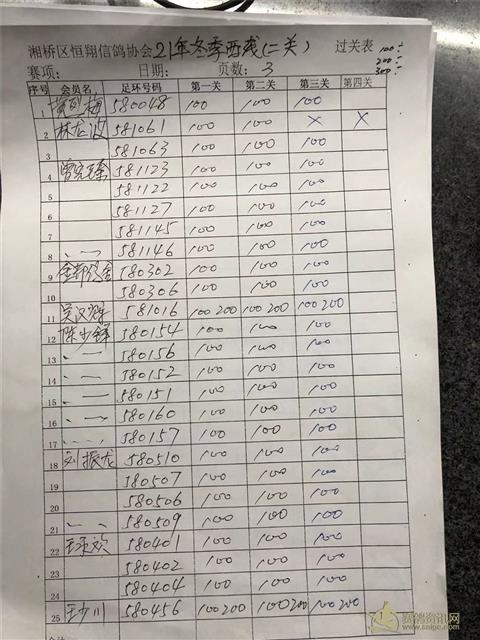 湘桥区恒翔信鸽协会21年冬季西线(二关) 过关表 100÷
200÷
300÷
赛项: 日期: 页数: 3
序号 会员名 足环号码 第一关 第二关 第三关 第四关
1 580048 100 100 100
2 林龙波 581061 100 100 × ×
3 581063 100 100 100
4 581123 100 100 100
5 581122 100 100 100
6 581127 100 100 100
7 581145 100 100 100
8 、一 581146 100 100 100
9 580302 100 100 100
10 580306 100 100 100
11 吴汉辉 581016 100 200 100 200 100 200
12 陈少锋 580154 100 100 100
13 、一 580156 100 100 100
14 、一 580152 100 100 100
15 、一 580151 100 100 100
16 、一 580160 100 100 100
17 580157 100 100 100
18 刘振龙 580510 100 100 100
19 580507 100 100 100
20 580506 100 100 100
21 580509 100 100 100
22 580401 100 100 100
23 580402 100 100 100
24 580404 100 100 100
25 王少川 580456 100 200 100 200 100 200
赛鸽资讯网
www.saige.com